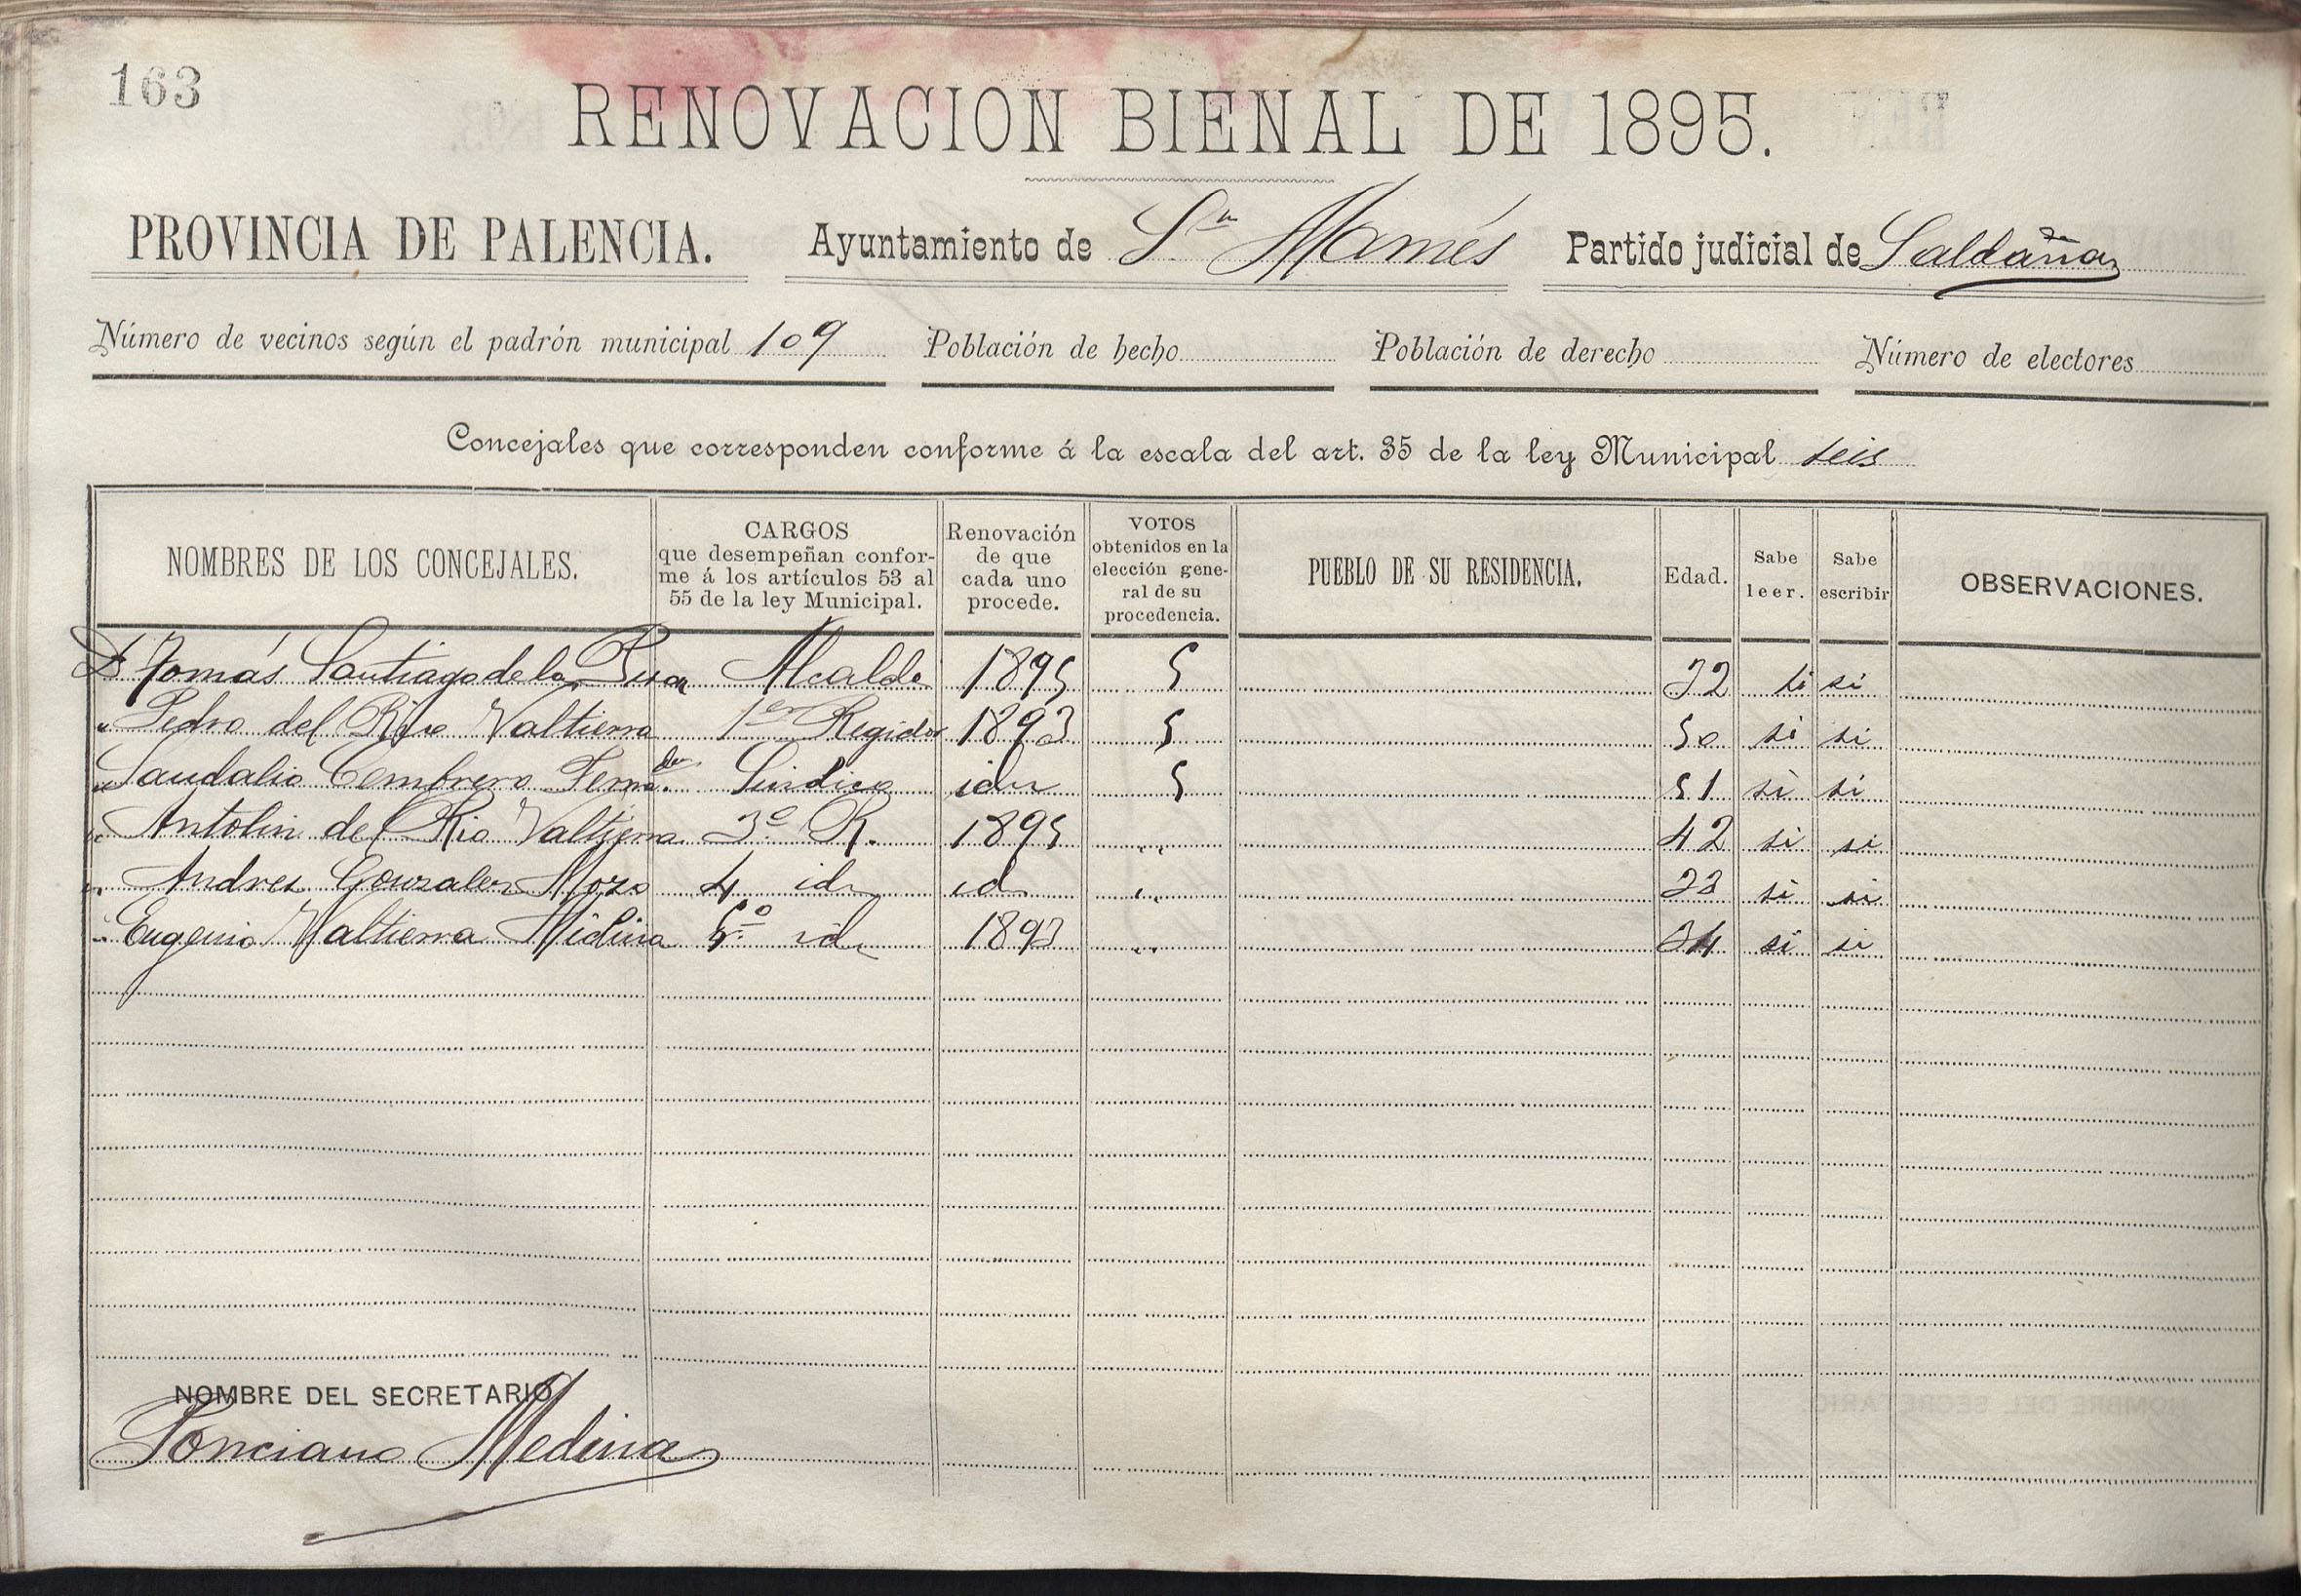 163
RENOVACION BIENAL DE 1895.
PROVINCIA DE PALENCIA. Ayuntamiento de Sn Mamés Partido judicial de Saldaña
Número de vecinos según el padrón municipal 109 Población de hecho Población de derecho Número de electores
Concejales que corresponden conforme á la escala del art. 35 de la ley Municipal seis
NOMBRES DE LOS CONCEJALES. CARGOS que desempeñan confor- me á los artículos 53 al 55 de la ley Municipal. Renovación de que cada uno procede. VOTOS obtenidos en la elección gene- ral de su procedencia. PUEBLO DE SU RESIDENCIA. Edad. Sabe leer. Sabe escribir OBSERVACIONES.
D. Tomás Santiago de la Alcalde 1895 5 32 si si
" Pedro del Rio Valtierra 1er Regidor 1893 5 50 si si
" Sandalio Cembrero Fernadez Sindico idm 5 51 si si
" Antolin del Rio Valtierra 3º R. 1895 " 42 si si
" Andres Gonzalez Mozo 4 id id " 33 si si
" Eugenio Valtierra Medina 5º id 1893 " 34 si si
NOMBRE DEL SECRETARIO
Ponciano Medina